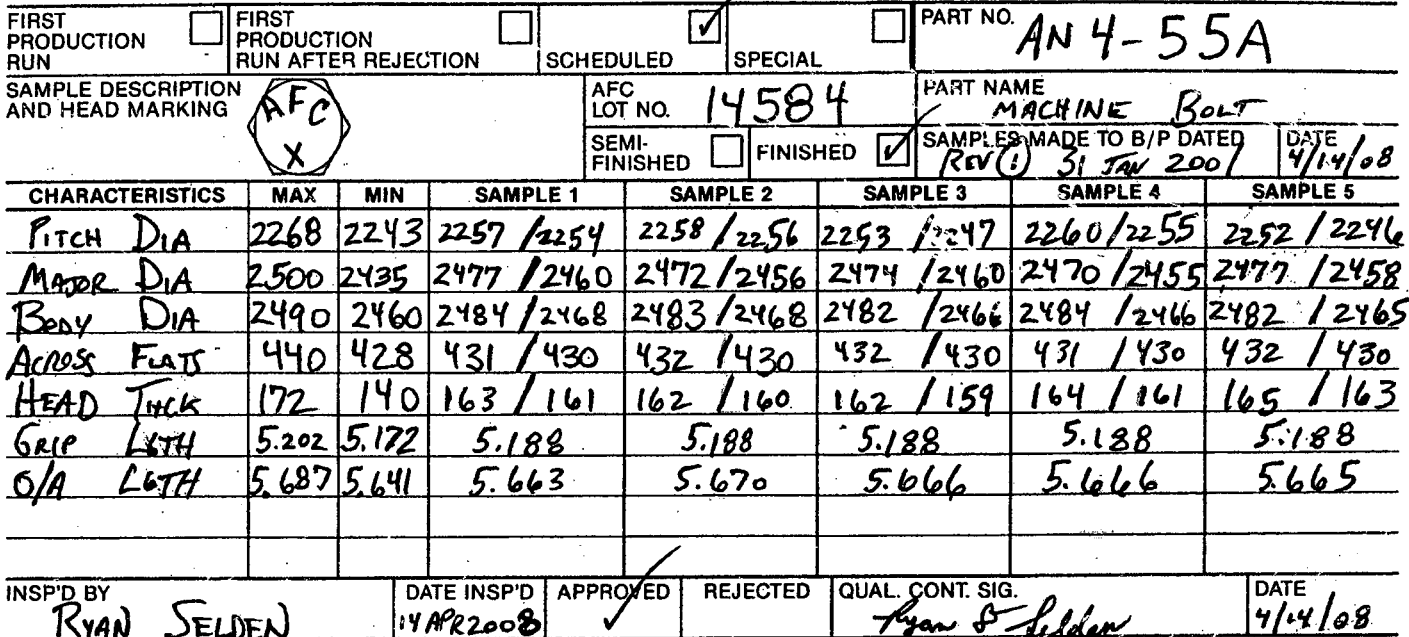 FIRST PRODUCTION RUN
FIRST PRODUCTION RUN AFTER REJECTION
SCHEDULED ✓
SPECIAL
PART NO. AN 4-55A
SAMPLE DESCRIPTION AND HEAD MARKING
AFC
X
AFC LOT NO. 14584
PART NAME MACHINE BOLT
SEMI-FINISHED
FINISHED ✓
SAMPLES MADE TO B/P DATED REV 1 31 JAN 2001
DATE 4/14/08
CHARACTERISTICS MAX MIN SAMPLE 1 SAMPLE 2 SAMPLE 3 SAMPLE 4 SAMPLE 5
PITCH DIA 2268 2243 2257 / 2254 2258 / 2256 2253 / 2247 2260 / 2255 2252 / 2246
MAJOR DIA 2500 2435 2477 / 2460 2472 / 2456 2474 / 2460 2470 / 2455 2477 / 2458
BODY DIA 2490 2460 2484 / 2468 2483 / 2468 2482 / 2466 2484 / 2466 2482 / 2465
ACROSS FLATS 440 428 431 / 430 432 / 430 432 / 430 431 / 430 432 / 430
HEAD THCK 172 140 163 / 161 162 / 160 162 / 159 164 / 161 165 / 163
GRIP LGTH 5.202 5.172 5.188 5.188 5.188 5.188 5.188
O/A LGTH 5.687 5.641 5.663 5.670 5.666 5.666 5.665
INSP'D BY RYAN SELDEN
DATE INSP'D 14 APR 2008
APPROVED ✓
REJECTED
QUAL. CONT. SIG. Ryan S Selden
DATE 4/14/08